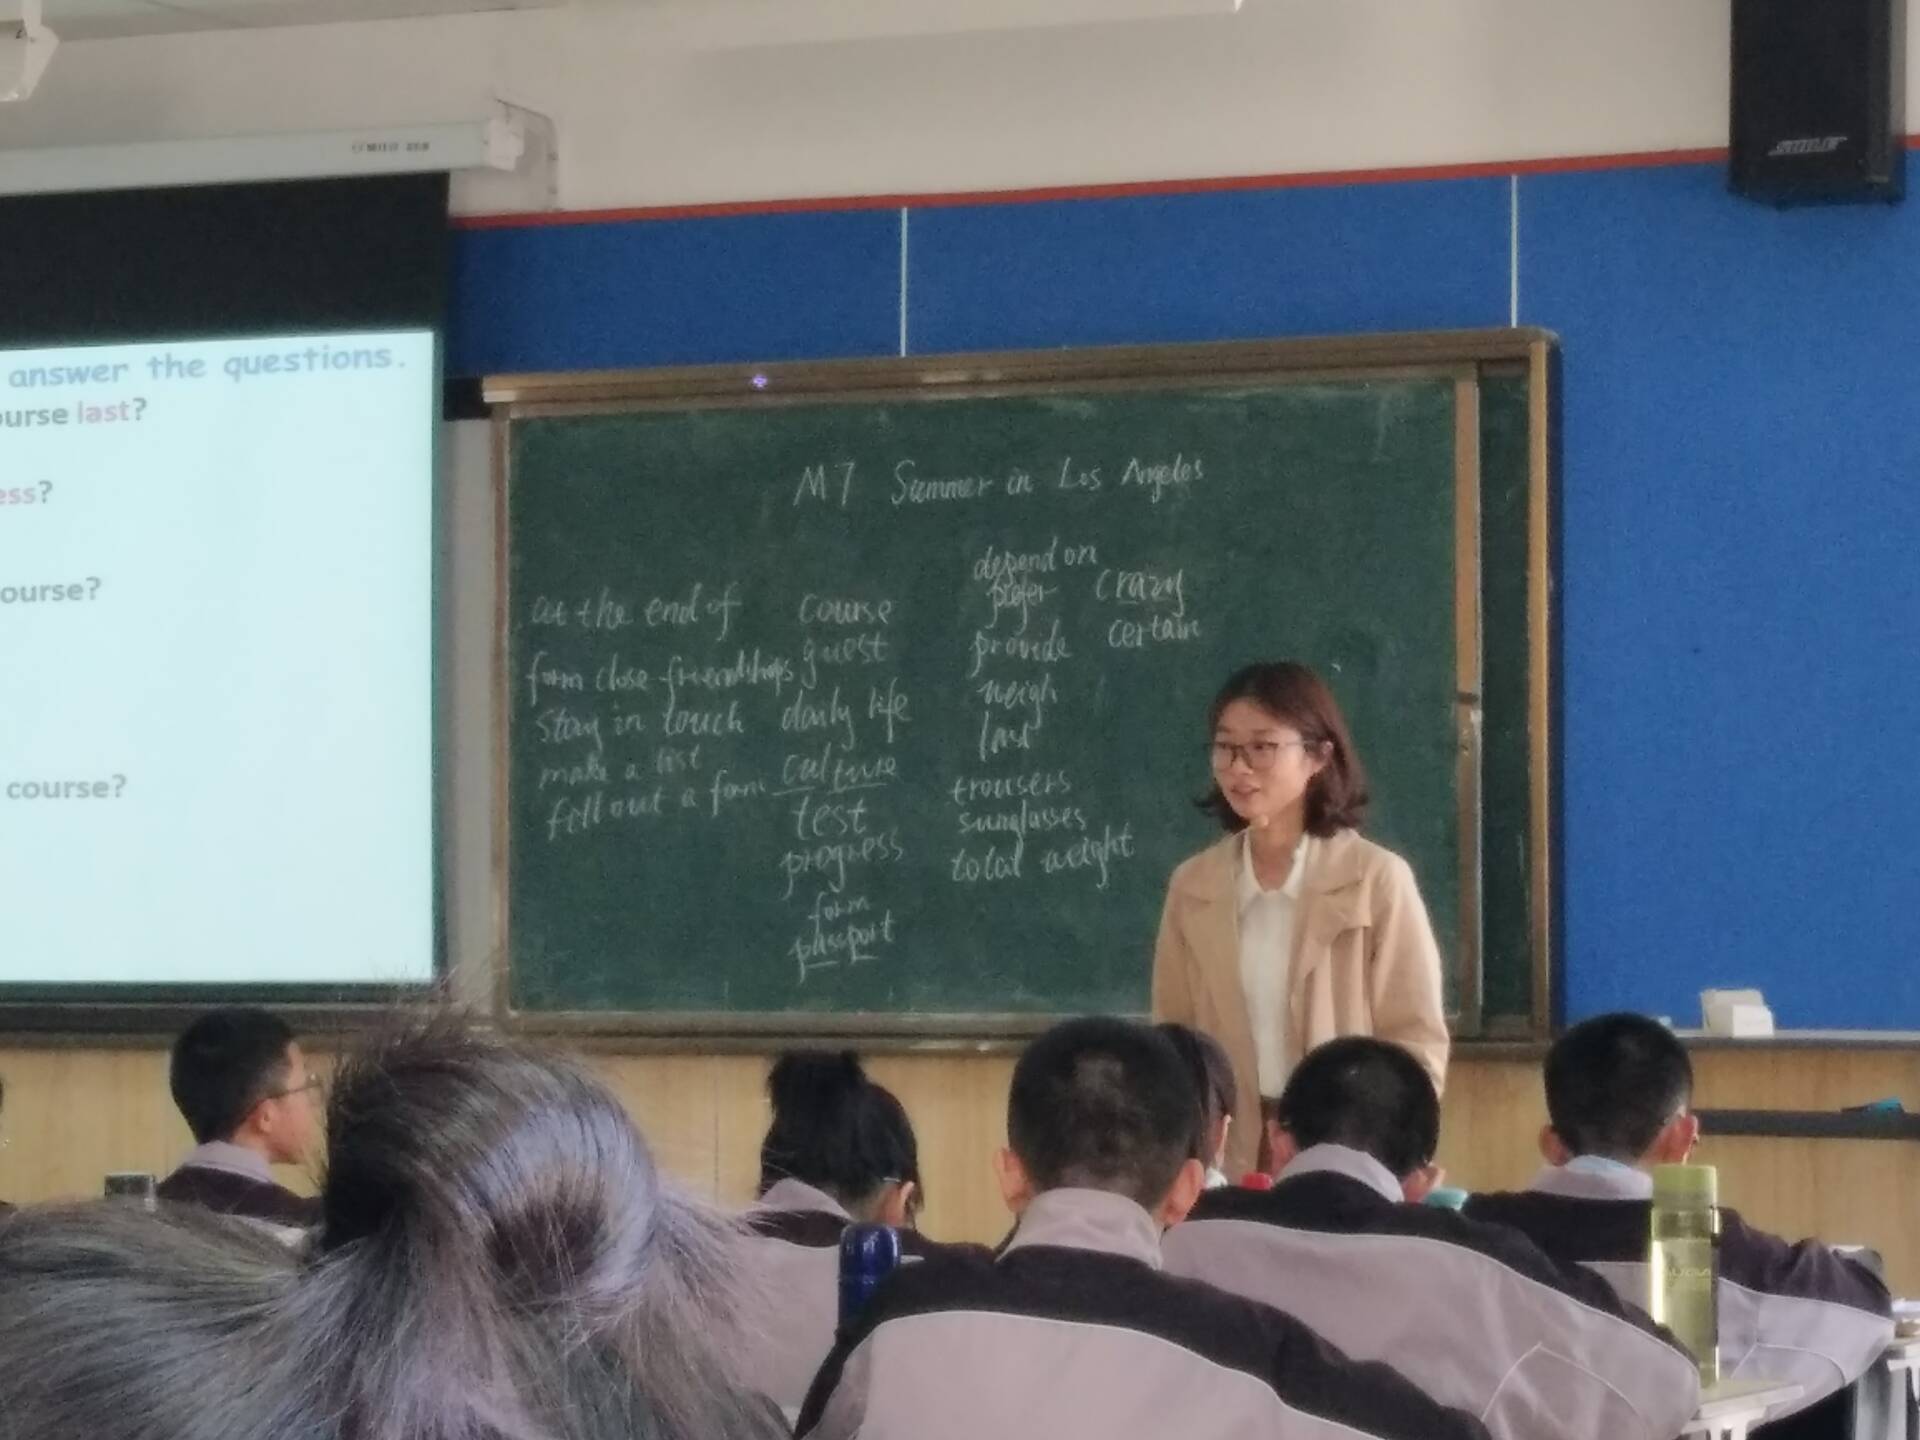 answer the questions.
ourse last?
ess?
ourse?
course?
M7 Summer in Los Angeles
at the end of
form close friendships
stay in touch
make a list
fill out a form
course
guest
daily life
culture
test
progress
form
passport
depend on
prefer
provide
weigh
last
trousers
sunglasses
total weight
crazy
certain